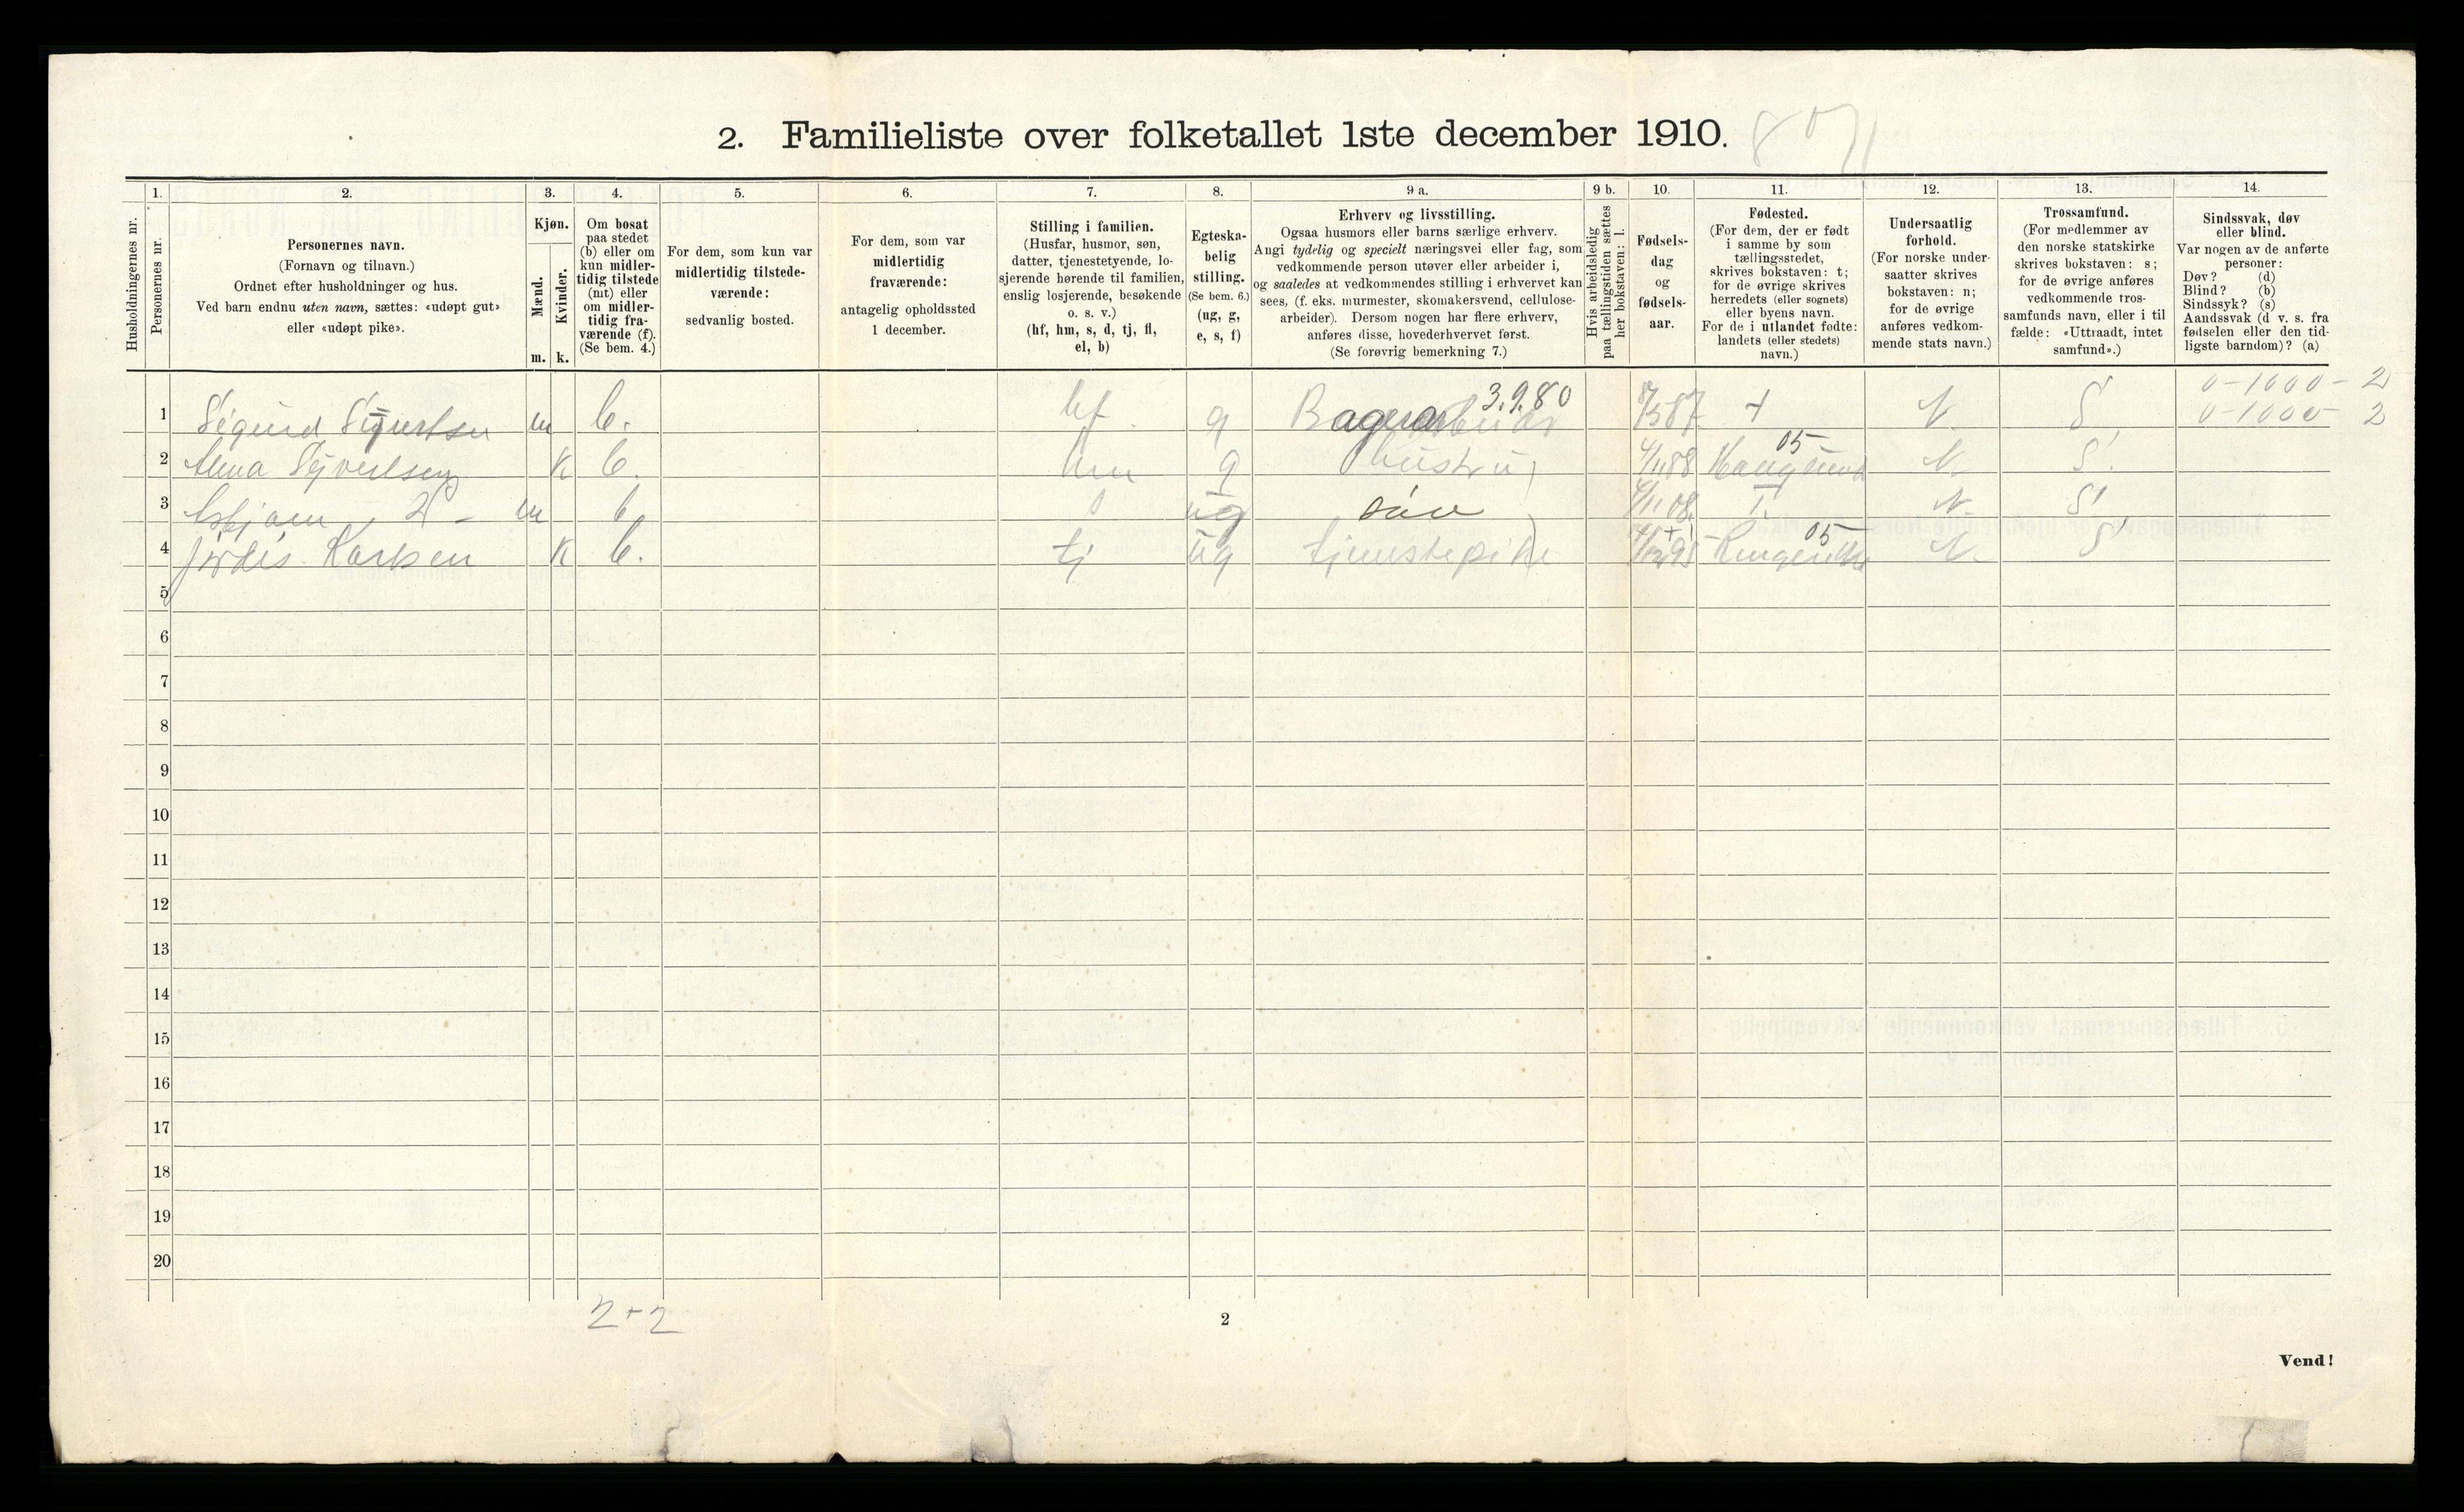 2. Familieliste over folketallet 1ste december 1910.
Husholdningernes nr.
1.
Personernes nr.
2.
Personernes navn.
(Fornavn og tilnavn.)
Ordnet efter husholdninger og hus.
Ved barn endnu uten navn, sættes: «udøpt gut»
eller «udøpt pike».
3.
Kjøn.
Mænd.
m.
Kvinder.
k.
4.
Om bosat
paa stedet
(b) eller om
kun midler-
tidig tilstede
(mt) eller
om midler-
tidig fra-
værende (f).
(Se bem. 4.)
5.
For dem, som kun var
midlertidig tilstede-
værende:
sedvanlig bosted.
6.
For dem, som var
midlertidig
fraværende:
antagelig opholdssted
1 december.
7.
Stilling i familien.
(Husfar, husmor, søn,
datter, tjenestetyende, lo-
sjerende hørende til familien,
enslig losjerende, besøkende
o. s. v.)
(hf, hm, s, d, tj, fl,
el, b)
8.
Egteska-
belig
stilling.
(Se bem. 6.)
(ug, g,
e, s, f)
9 a.
Erhverv og livsstilling.
Ogsaa husmors eller barns særlige erhverv.
Angi tydelig og specielt næringsvei eller fag, som
vedkommende person utøver eller arbeider i,
og saaledes at vedkommendes stilling i erhvervet kan
sees, (f. eks. murmester, skomakersvend, cellulose-
arbeider). Dersom nogen har flere erhverv,
anføres disse, hovederhvervet først.
(Se forøvrig bemerkning 7.)
9 b.
Hvis arbeidsledig
paa tællingstiden sættes
her bokstaven: l.
10.
Fødsels-
dag
og
fødsels-
aar.
11.
Fødested.
(For dem, der er født
i samme by som
tællingsstedet,
skrives bokstaven: t;
for de øvrige skrives
herredets (eller sognets)
eller byens navn.
For de i utlandet fødte:
landets (eller stedets)
navn.)
12.
Undersaatlig
forhold.
(For norske under-
saatter skrives
bokstaven: n;
for de øvrige
anføres vedkom-
mende stats navn.)
13.
Trossamfund.
(For medlemmer av
den norske statskirke
skrives bokstaven: s;
for de øvrige anføres
vedkommende tros-
samfunds navn, eller i til
fælde: «Uttraadt, intet
samfund».)
14.
Sindssvak, døv
eller blind.
Var nogen av de anførte
personer:
Døv? (d)
Blind? (b)
Sindssyk? (s)
Aandssvak (d v. s. fra
fødselen eller den tid-
ligste barndom)? (a)
0-1000-2
1 Sigurd m b. hf g 3.9.80 t N S 0-1000-2
2 K b. hm g hustru 05 N S.
3 m b. s ug søn t. N S
4 Karlsen K b. tj ug tjenstepike 05 N. S
5
6
7
8
9
10
11
12
13
14
15
16
17
18
19
20
2+2
2
Vend!